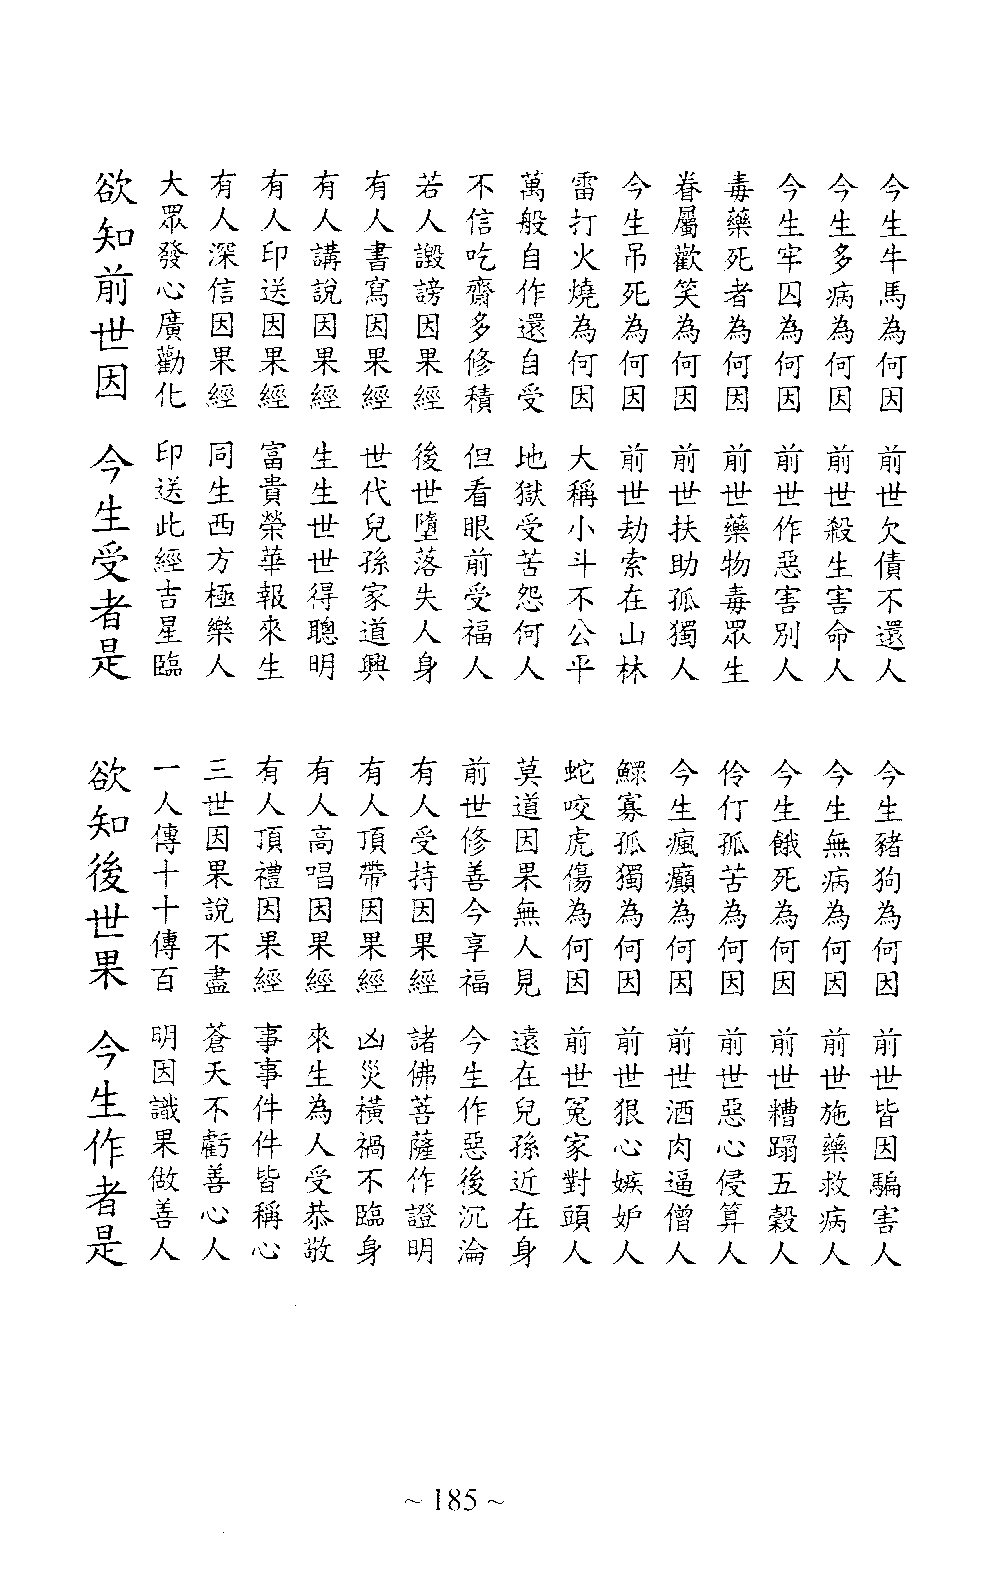 今生牛馬為何因　前世欠債不還人　今生豬狗為何因　前世皆因騙害人
今生多病為何因　前世殺生害命人　今生無病為何因　前世施藥救病人
今生牢囚為何因　前世作惡害別人　今生餓死為何因　前世糟蹋五穀人
毒藥死者為何因　前世藥物毒眾生　伶仃孤苦為何因　前世惡心侵算人
眷屬歡笑為何因　前世扶助孤獨人　今生瘋癲為何因　前世酒肉逼僧人
今生吊死為何因　前世劫索在山林　鰥寡孤獨為何因　前世狠心嫉妒人
雷打火燒為何因　大稱小斗不公平　蛇咬虎傷為何因　前世冤家對頭人
萬般自作還自受　地獄受苦怨何人　莫道因果無人見　遠在兒孫近在身
不信吃齋多修積　但看眼前受福人　前世修善今享福　今生作惡後沉淪
若人譭謗因果經　後世墮落失人身　有人受持因果經　諸佛菩薩作證明
有人書寫因果經　世代兒孫家道興　有人頂帶因果經　凶災橫禍不臨身
有人講說因果經　生生世世得聰明　有人高唱因果經　來生為人受恭敬
有人印送因果經　富貴榮華報來生　有人頂禮因果經　事事件件皆稱心
有人深信因果經　同生西方極樂人　三世因果說不盡　蒼天不虧善心人
大眾發心廣勸化　印送此經吉星臨　一人傳十十傳百　明因識果做善人
欲知前世因　今生受者是　欲知後世果　今生作者是
~ 185 ~